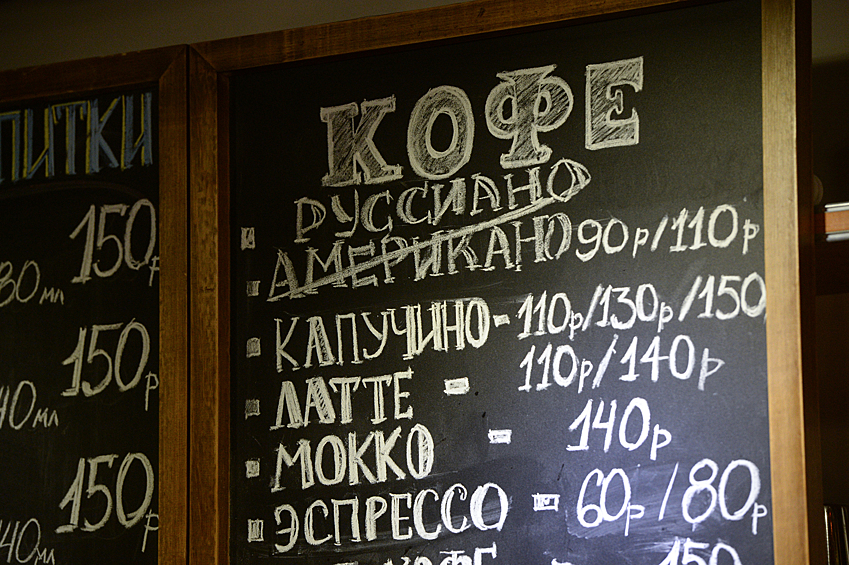 ПИТКИ
150р
80мл
150р
40мл
150р
40мл
КОФЕ
РУССИАНО
АМЕРИКАНО 90р/110р
КАПУЧИНО - 110р/130р/150
ЛАТТЕ - 110р/140р
МОККО - 140р
ЭСПРЕССО - 60р/80р
КОФЕ 150